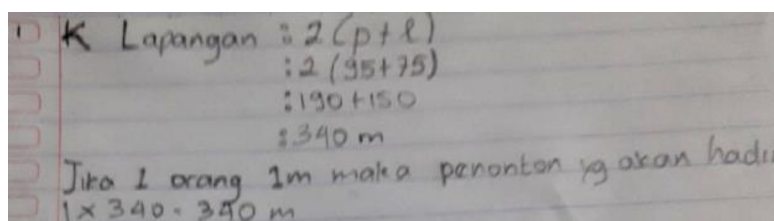 1 K Lapangan : 2 (p + l)
: 2 (95+75)
: 190 + 150
: 340 m
Jika 1 orang 1m maka penonton yg akan hadir
1 x 340 = 340 m